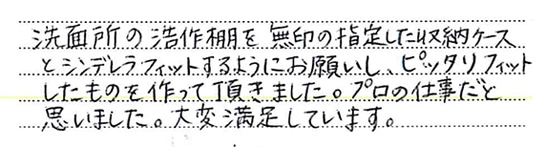 洗面所の浩作棚を無印の指定した収納ケース
とシンデレラフィットするようにお願いし、ピッタリフィット
したものを作って頂きました。プロの仕事だと
思いました。大変満足しています。